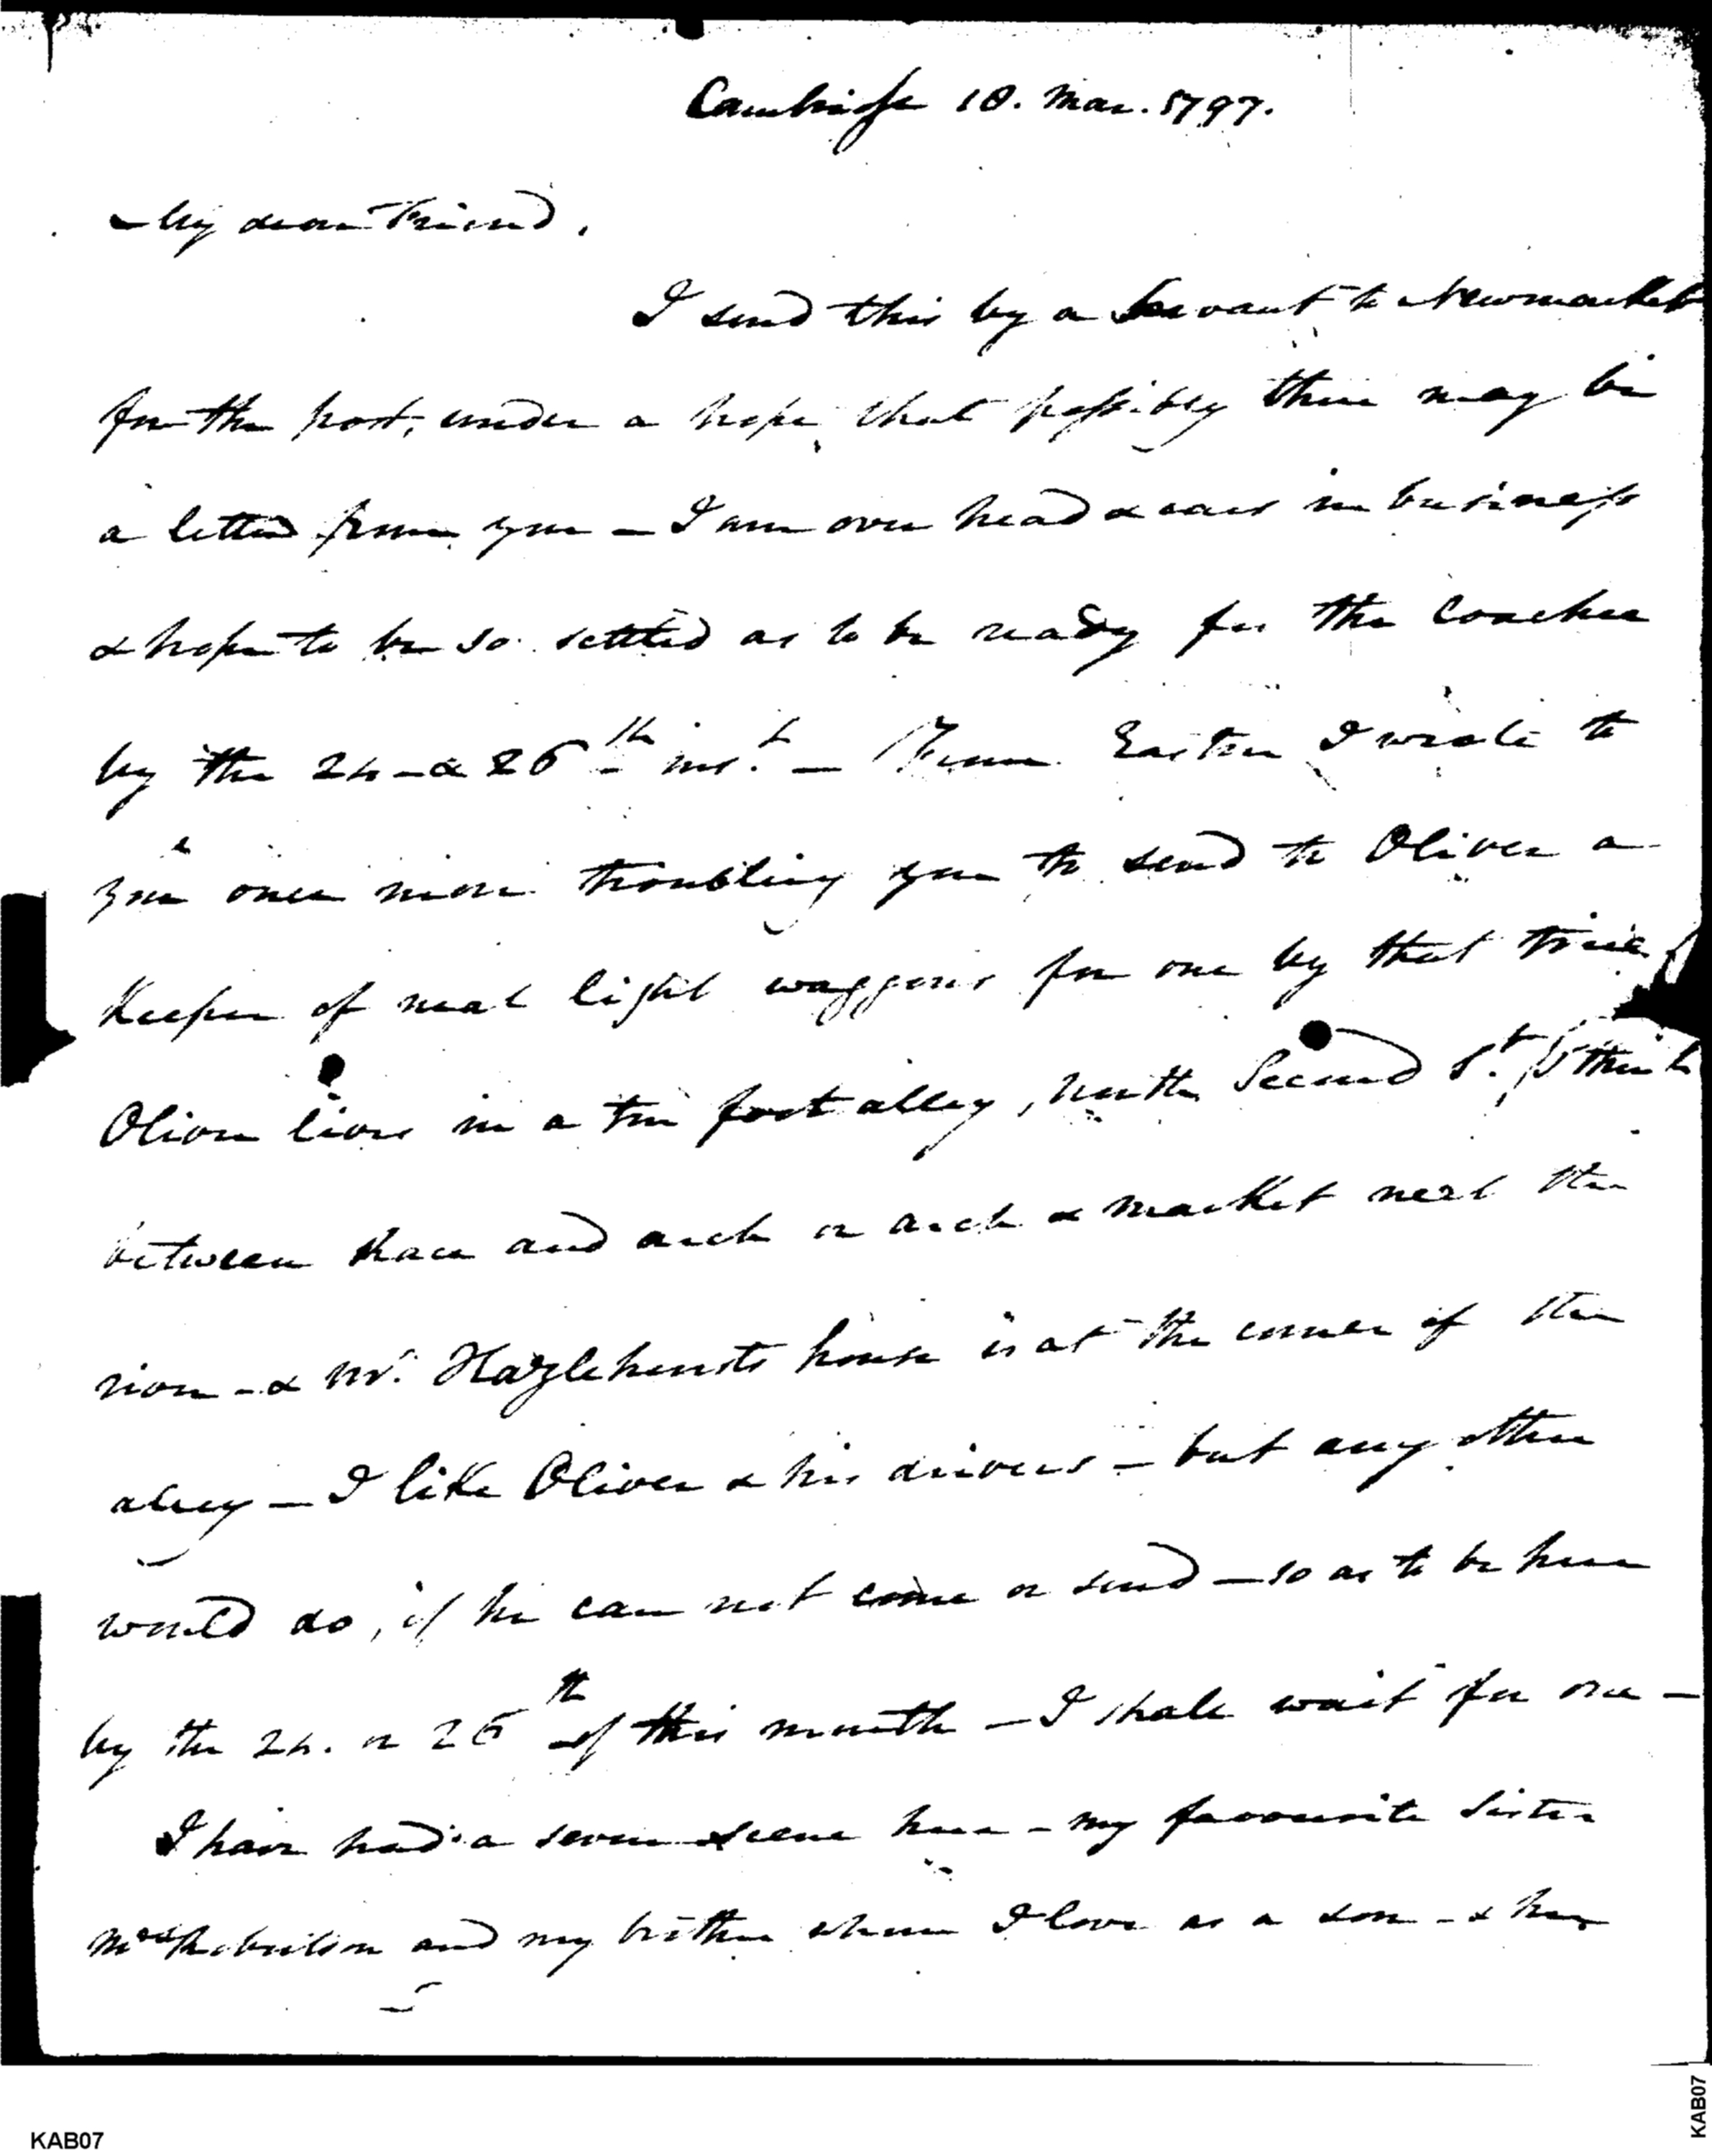 Cambridge 10. Mar. 1797.
My dear Friend,
I send this by a Servant to Newmarket
for the post, under a hope that possibly there may be
a letter from you – I am over head & ears in business
& hope to be so settled as to be ready for the Coachee
by the 24 – & 26th inst. – From Easton I wrote to
you once more troubling you to send to Oliver a
Keeper of neat light waggons for one by that time
Oliver lives in a ten foot alley, north Second St. I think
between Race and arch or arch & market next the
river – & Mr. Hazlehursts house is at the corner of the
alley – I like Oliver & his drivers – but any other
would do, if he can not come or send – so as to be here
by the 24. or 26th of this month – I shall wait for one –
I have had a severe scene here – my favourite Sister
Mrs Robertson and my brother whom I love as a son – & her
KAB07
KAB07